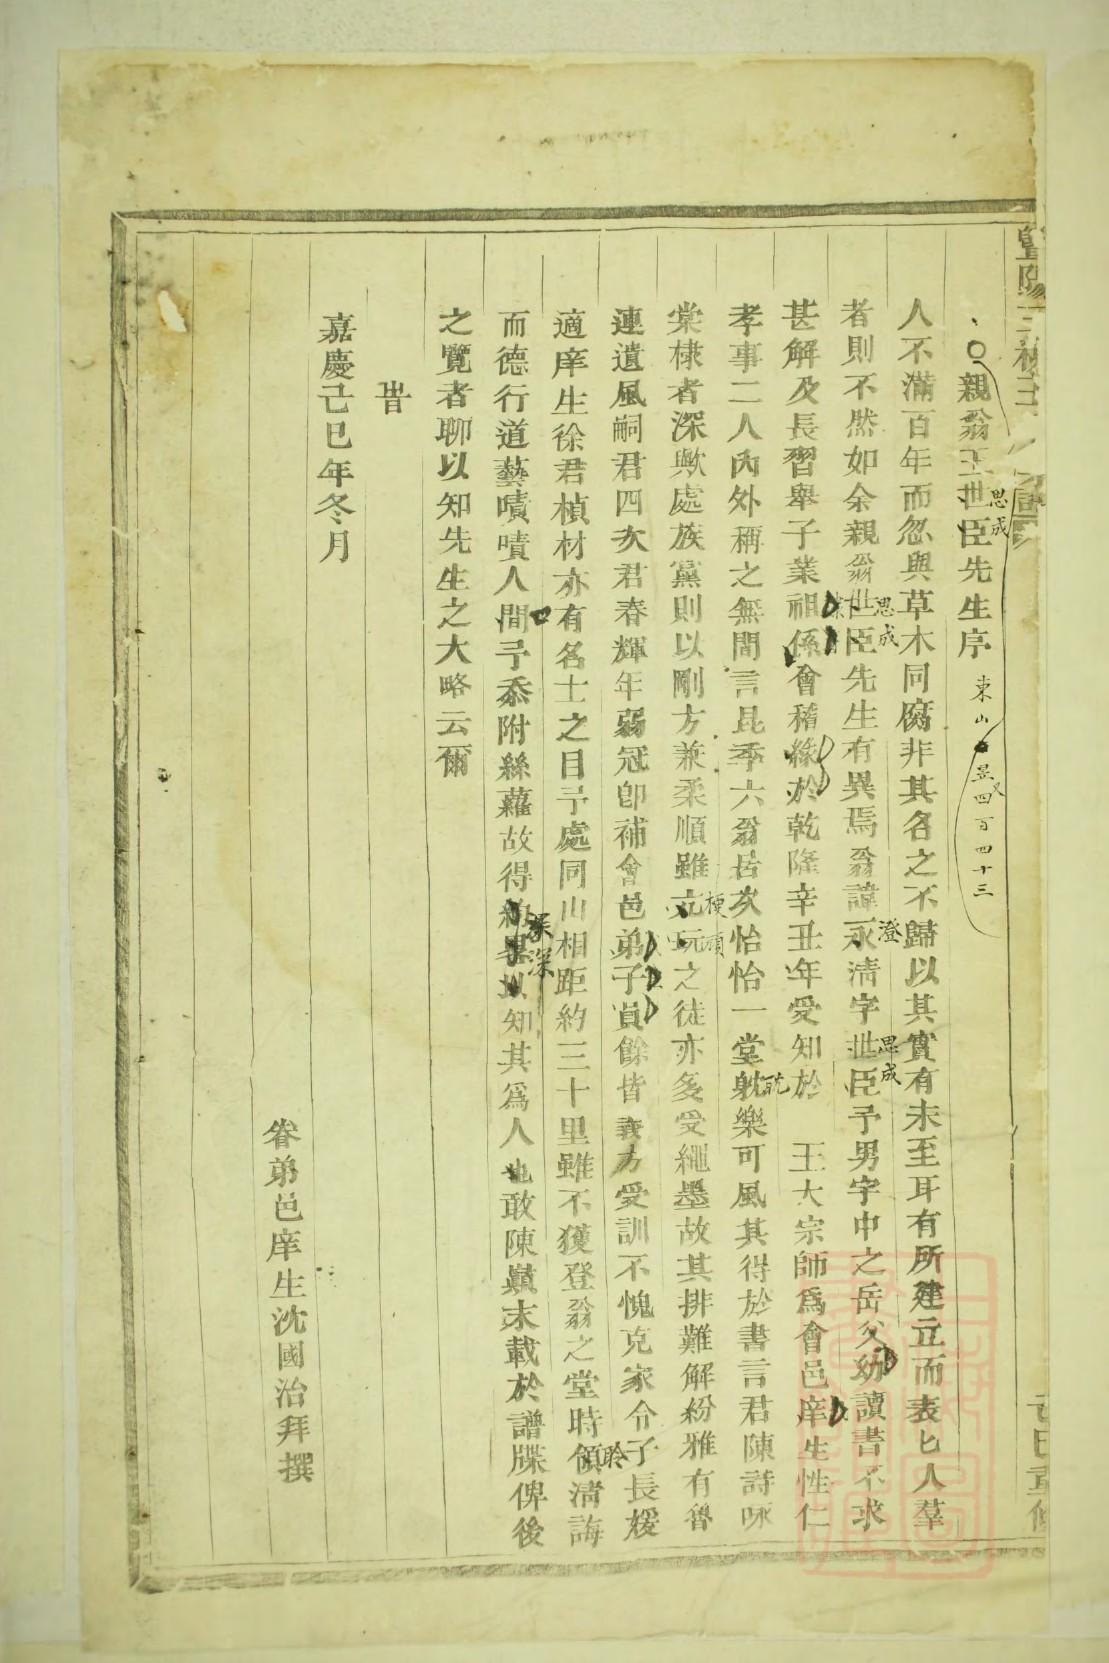 親翁王世臣先生序
思成
東山
昱四百四十三
人不滿百年而忽與草木同腐非其名之不歸以其實有未至耳有所建立而表匕人羣
者則不然如余親翁世臣先生有異焉翁諱永淸字世臣予男字中之岳父幼讀書不求
思成
澄
思成
甚解及長習舉子業祖係會稽緣於乾隆辛丑年受知於 王大宗師爲會邑庠生性仁
孝事二人內外稱之無間言昆季六翁居次怡怡一堂躭樂可風其得於書言君陳詩咏
耽
棠棣者深歟處族黨則以剛方兼柔順雖玩之徒亦多受繩墨故其排難解紛雅有魯
梗頑
連遺風嗣君四次君春輝年弱冠卽補會邑弟子員餘皆義方受訓不愧克家令子長媛
適庠生徐君楨材亦有名士之目予處同山相距約三十里雖不獲登翁之堂時領淸誨
聆
而德行道藝嘖嘖人間予忝附絲蘿故得以知其爲人也敢陳巔末載於譜牒俾後
深深
之覽者聊以知先生之大略云爾
旹
嘉慶己巳年冬月
眷弟邑庠生沈國治拜撰